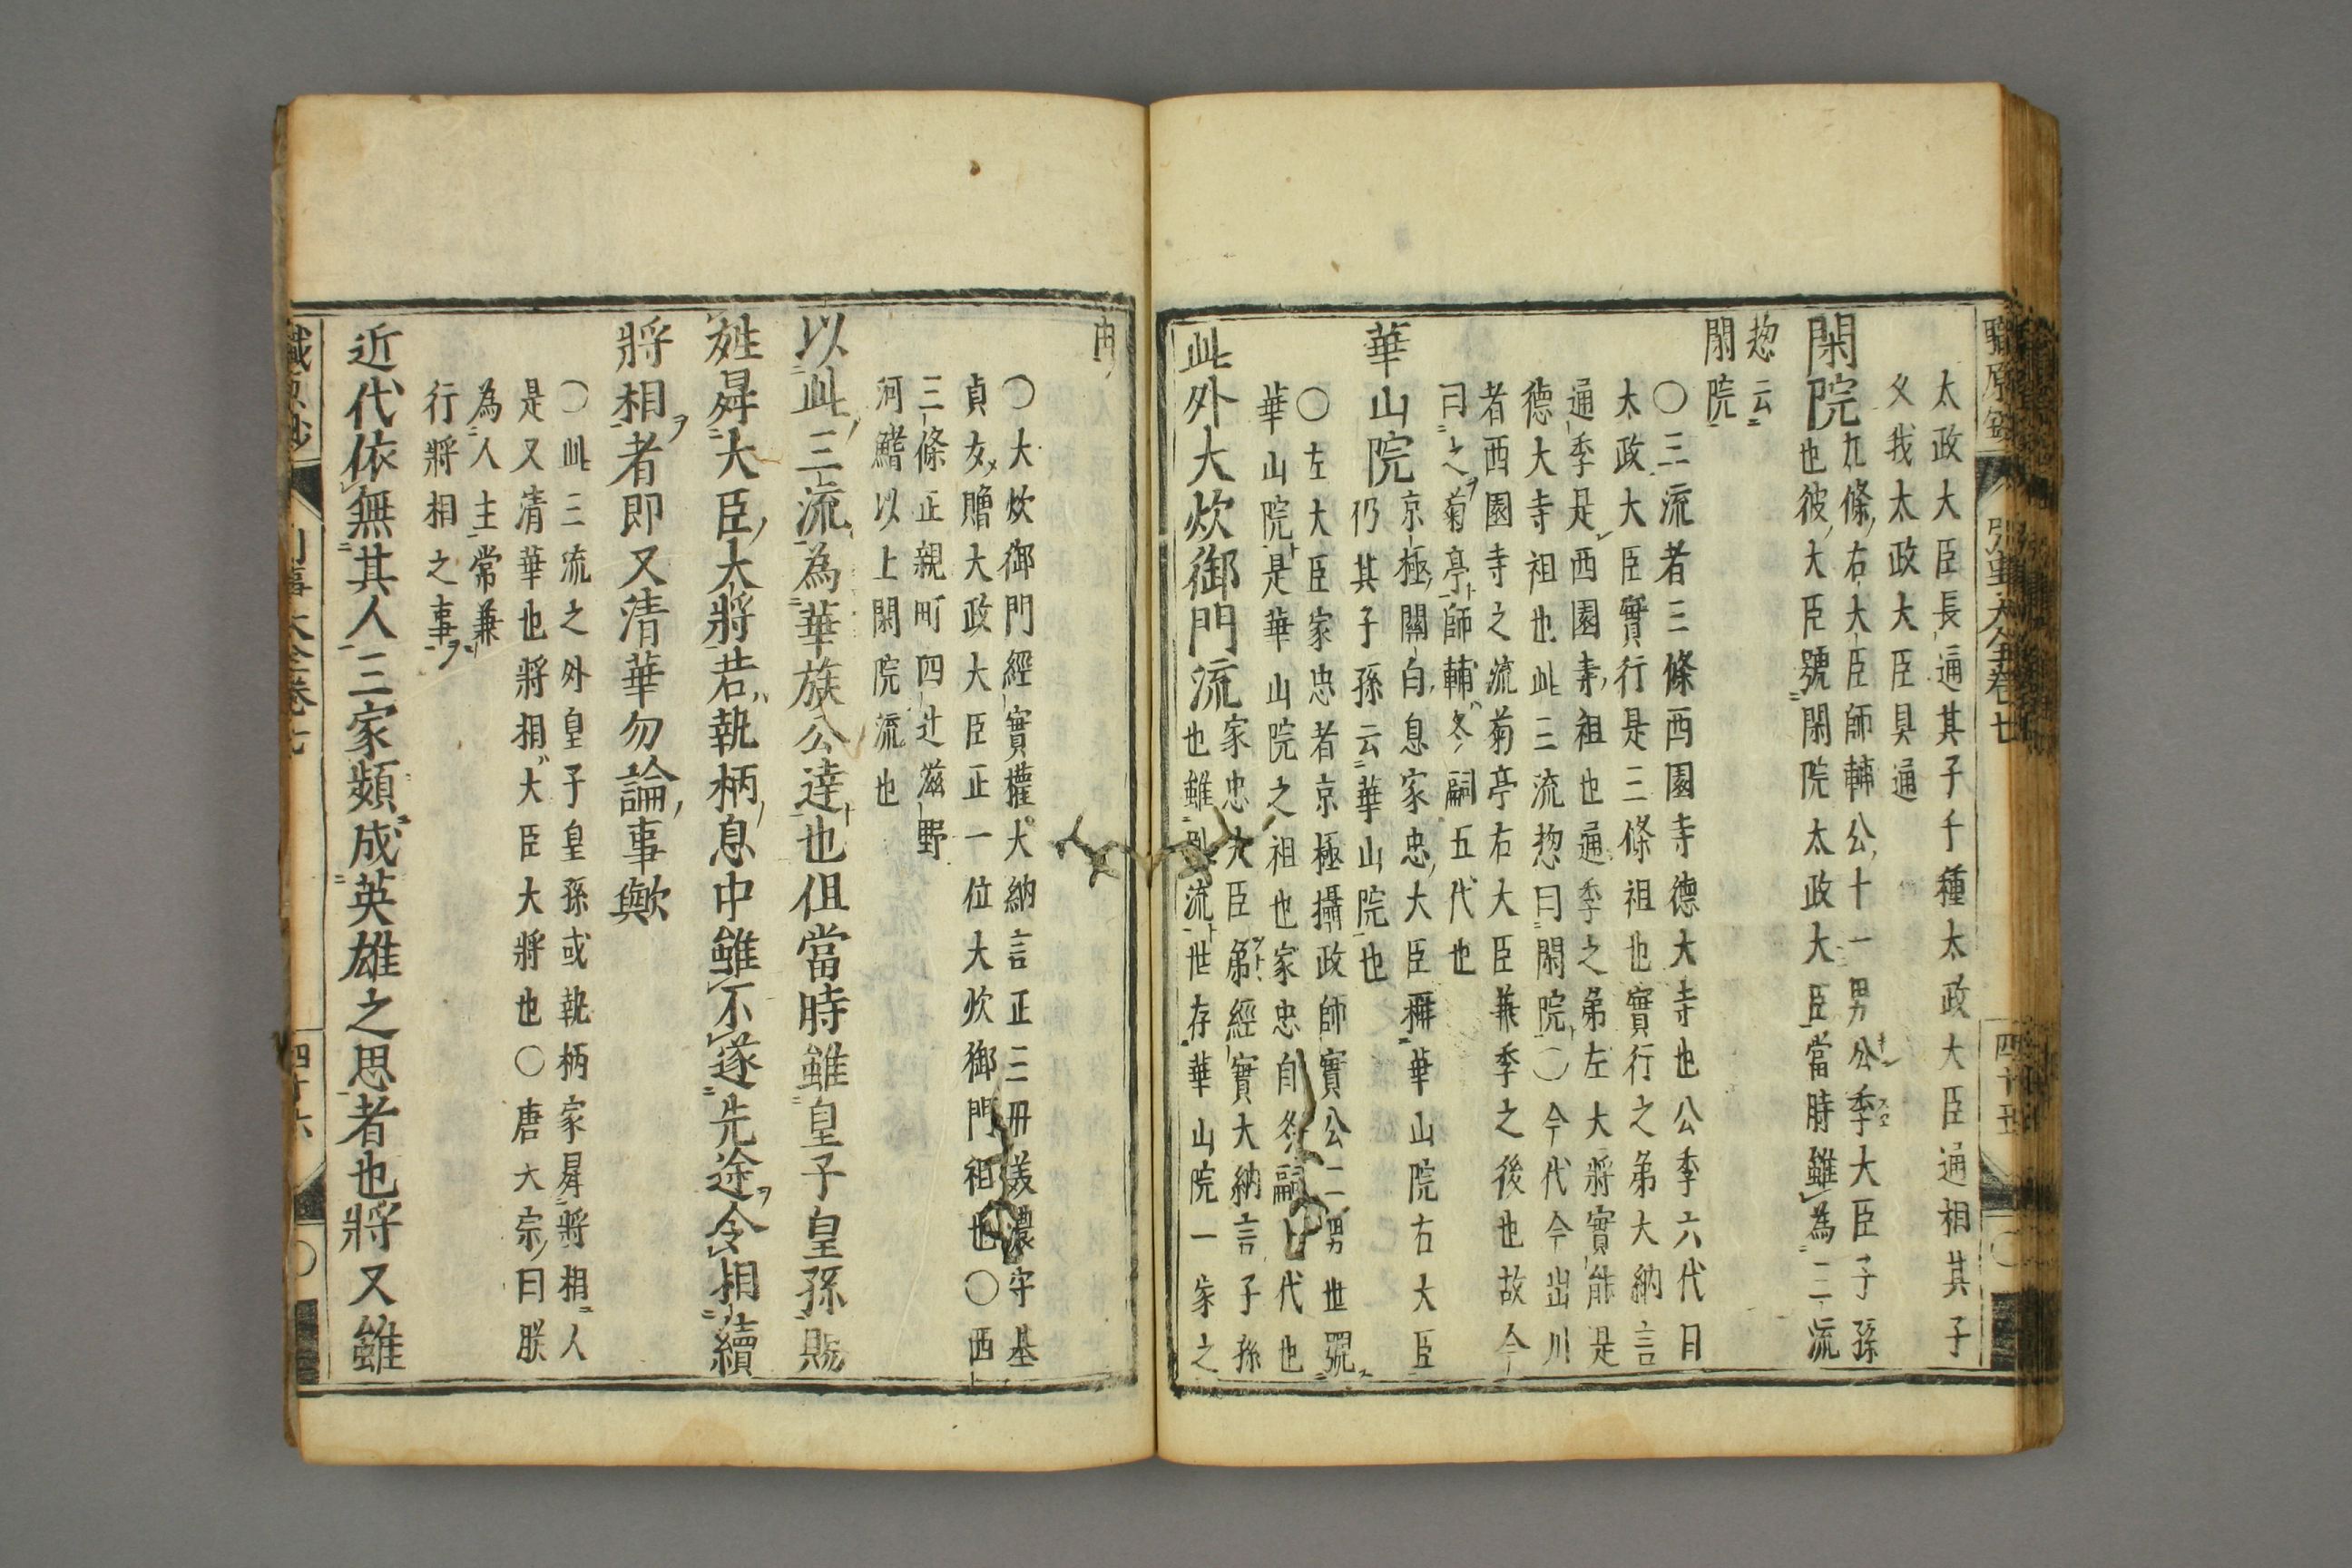 太政大臣長通其子千種太政大臣通相其子
父我太政大臣具通
閑院九條右大臣師輔公十一男公季大臣子孫
也彼大臣號閑院太政大臣當時雖為三流
惣云
閑院
〇三流者三條西園寺德大寺也公季六代日
太政大臣實行是三條祖也實行之弟大納言
通季是西園寺祖也通季之弟左大將實能是
德大寺祖也此三流惣曰閑院〇今代今出川
者西園寺之流菊亭右大臣兼季之後也故今
曰之菊亭師輔冬嗣五代也
華山院京極關白息家忠大臣稱華山院右大臣
仍其子孫云華山院也
〇左大臣家忠者京極攝政師實公二男世號
華山院是華山院之祖也家忠自冬嗣 代也
此外大炊御門流家忠大臣弟經實大納言子孫
也雖別流世存華山院一家之
内
〇大炊御門經實權大納言正二 美濃守基
貞女贈太政大臣正一位大炊御門祖也〇西
三條正親町四辻滋野
河鰭以上閑院流也
以此三流為華族公達也但當時雖皇子皇孫賜
姓昇大臣大將若執柄息中雖不遂先途令相續
將相者即又清華勿論事歟
〇此三流之外皇子皇孫或執柄家昇將相人
是又清華也將相大臣大將也〇唐太宗曰朕
為人主常兼
行將相之事
近代依無其人三家頻成英雄之思者也將又雖